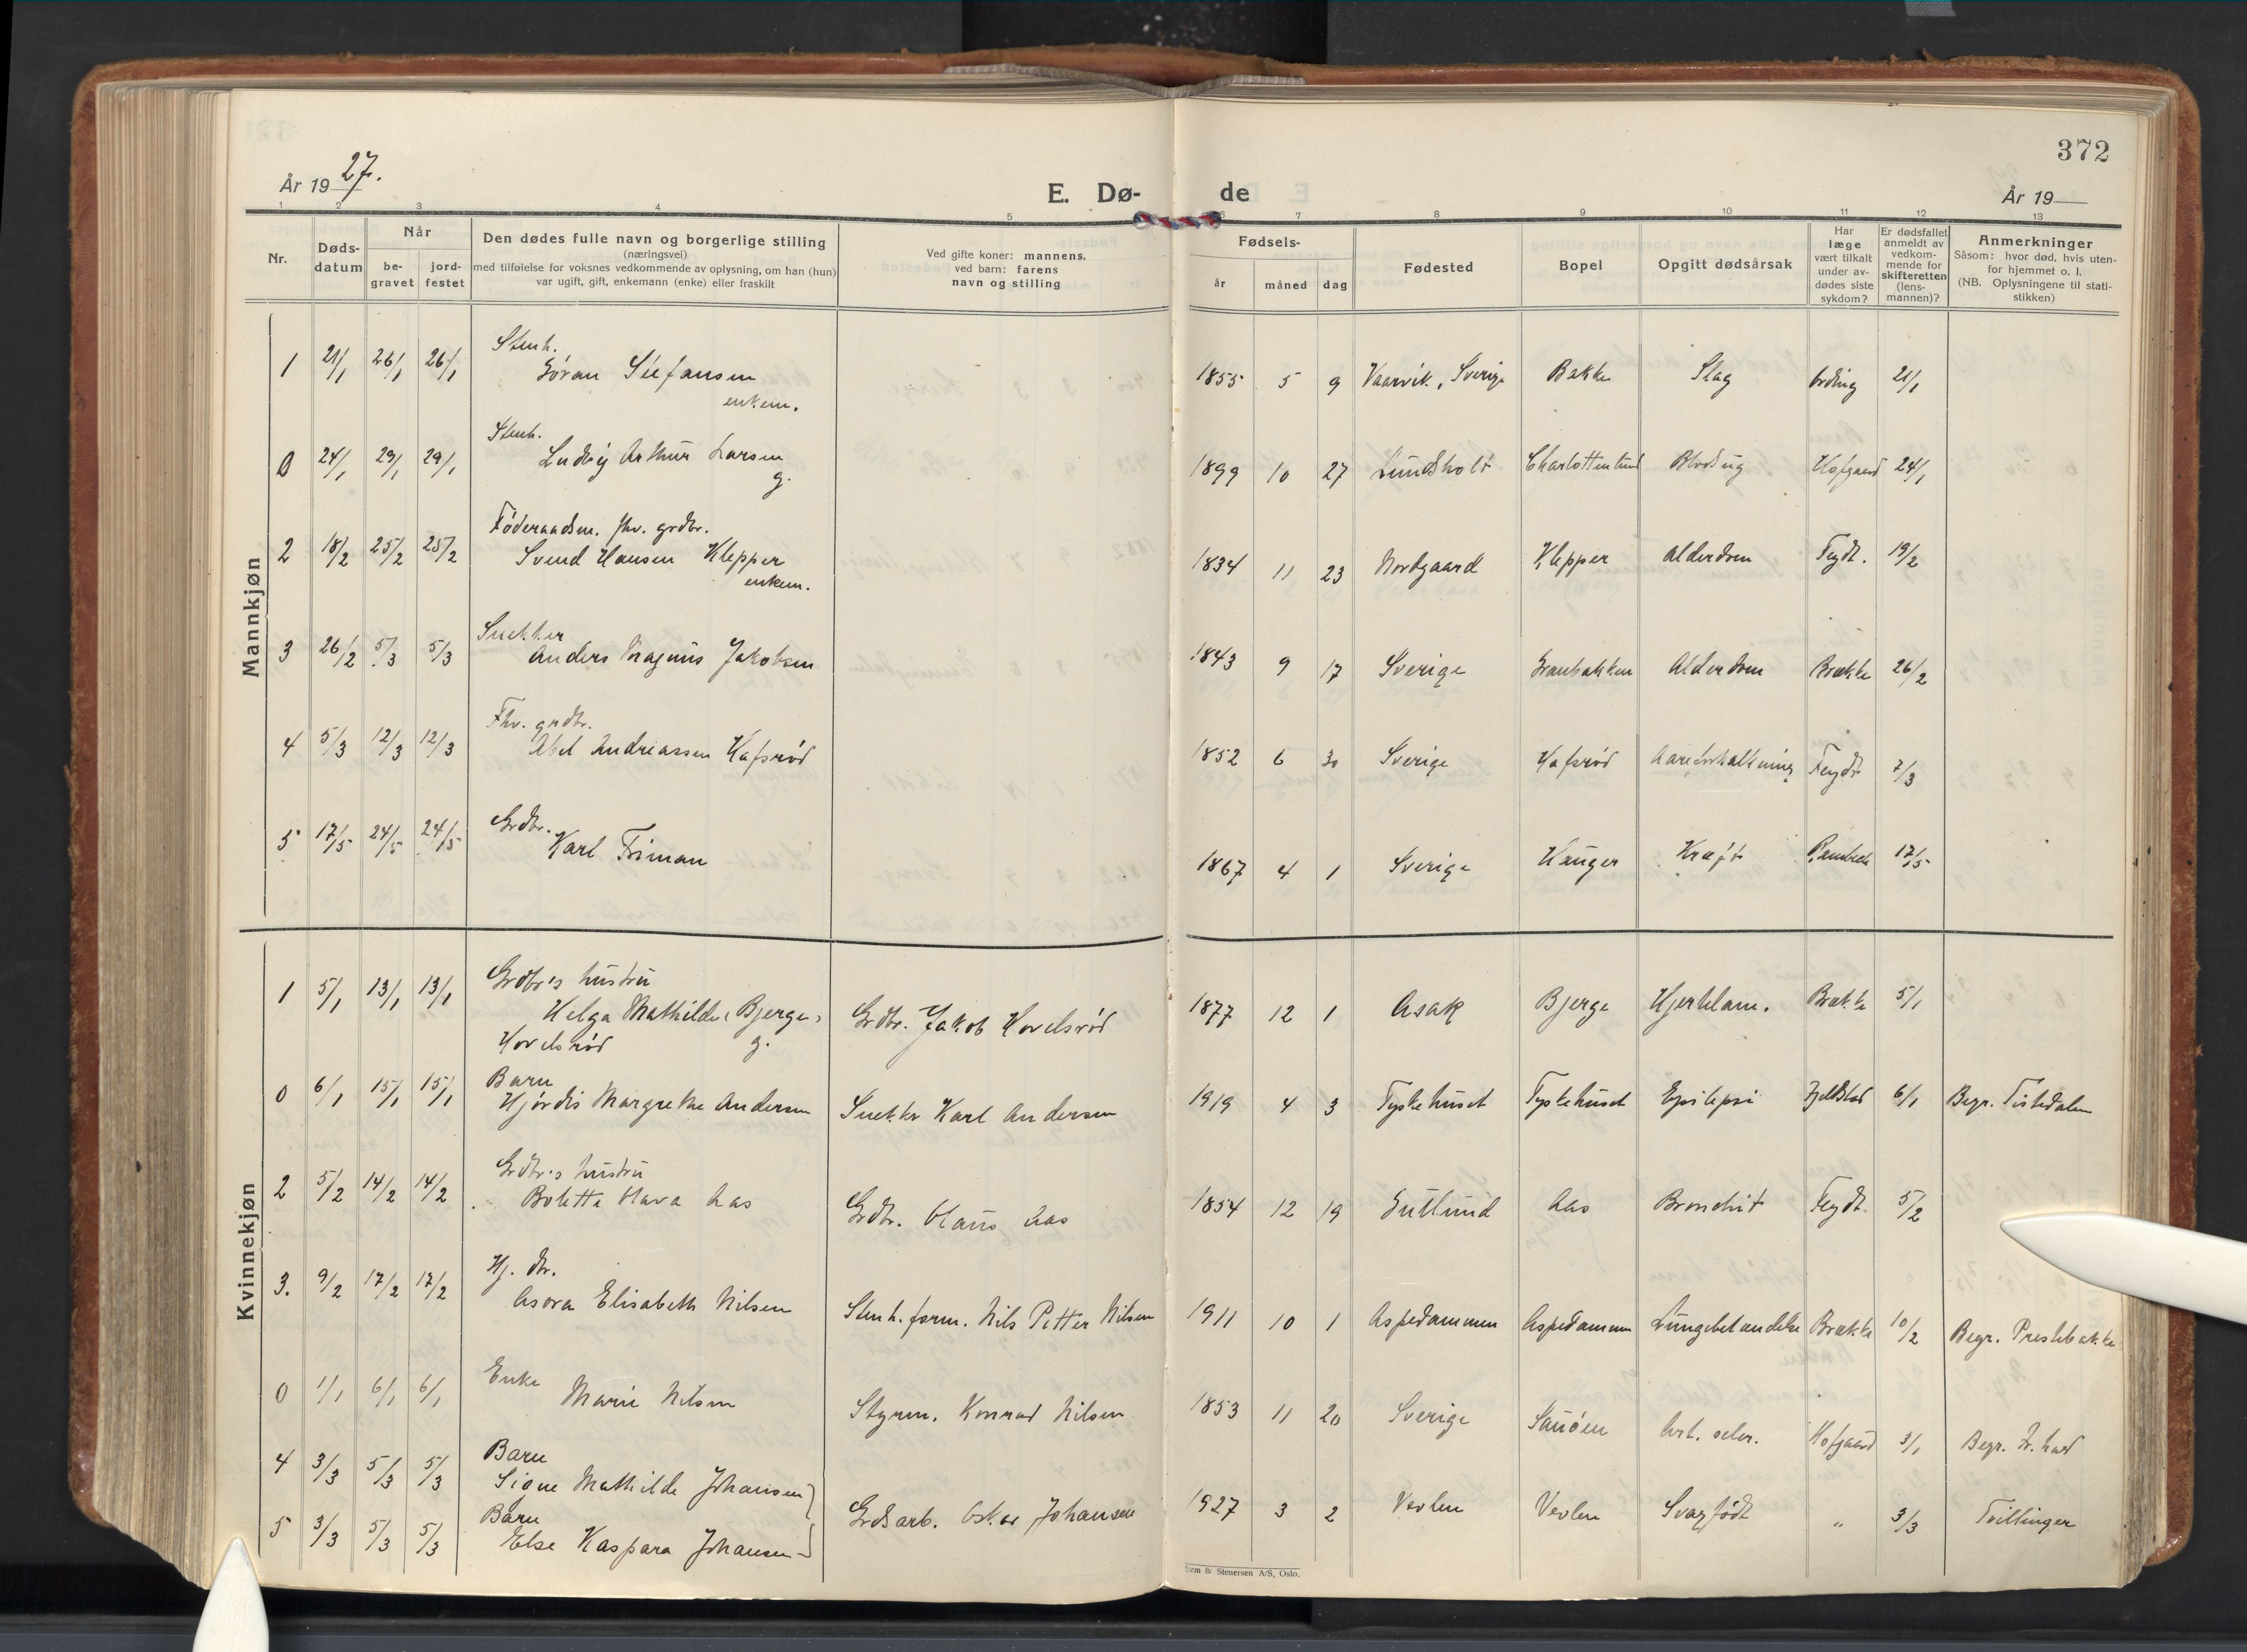 372
År 1927.
E. Dø-
de
År 19
1 2 3 4 5 6 7 8 9 10 11 12 13
Nr.
Døds-
datum
Når
be-
gravet
jord-
festet
Den dødes fulle navn og borgerlige stilling
(næringsvei)
med tilføielse for voksnes vedkommende av oplysning, om han (hun)
var ugift, gift, enkemann (enke) eller fraskilt
Ved gifte koner: mannens,
ved barn: farens
navn og stilling
Fødsels-
år måned dag
Fødested
Bopel
Opgitt dødsårsak
Har
læge
vært tilkalt
under av-
dødes siste
sykdom?
Er dødsfallet
anmeldt av
vedkom-
mende for
skifteretten
(lens-
mannen)?
Anmerkninger
Såsom: hvor død, hvis uten-
for hjemmet o. l.
(NB. Oplysningene til stati-
stikken)
Mannkjøn
Stenh.
1 21/1 26/1 26/1 Göran Stefansen 1855 5 9 Vaarvik, Sverige Bakke Slag Ording 21/1
enkem.
Stenh.
0 24/1 29/1 29/1 Ludvig Arthur Larsen 1899 10 27 Lundsholt Charlottenlund Blodsug Hofgaard 24/1
g.
Föderaadsm. fhv. grdbr.
2 18/2 25/2 25/2 Svend Hansen Klepper 1834 11 23 Nordgaard Klepper Alderdom Feydt. 19/2
enkem.
Snekker
3 26/2 5/3 5/3 Anders Magnus Jakobsen 1843 9 17 Sverige Granbakken Alderdom Brække 26/2
Fhv. grdbr.
4 5/3 12/3 12/3 Abel Andreassen Hafsrød 1852 6 30 Sverige Hafsrød Aareforkalkning Feydt 7/3
Grdbr.
5 17/5 24/5 24/5 Karl Friman 1867 4 1 Sverige Hauger Kræft 17/5
Kvinnekjøn
Grdbr's hustru
1 5/1 13/1 13/1 Helga Mathilde (Bjerge) Grdbr. Jakob Hovelsrød 1877 12 1 Asak Bjerge Hjertelam. Brække 5/1
Hovelsrød g.
Barn
0 6/1 15/1 15/1 Hjørdis Margrethe Andersen Snekker Karl Andersen 1919 4 3 Tyskehuset Tyskehuset Epilepsi Fjeldstad 6/1 Begr. Tistedalen
Grdbr's hustru
2 5/2 14/2 14/2 Bolette Olava Aas Grdbr. Olaus Aas 1854 12 19 Gutlund Aas Bronchit Feydt 5/2
Hj. dtr.
3. 9/2 17/2 17/2 Asora Elisabeth Nilsen Stenh. form. Nils Petter Nilsen 1911 10 1 Aspedammen Aspedammen Lungebetændelse Brække 10/2 Begr. Prestebakke
Enke
0 1/1 6/1 6/1 Marie Nilsen Styrm. Konrad Nilsen 1853 11 20 Sverige Sauøen Art. scler. Hofgaard 3/1 Begr. Fr. hald
Barn
4 3/3 5/3 5/3 Signe Mathilde Johansen
Grdsarb. Oskar Johansen 1927 3 2 Vevlen Vevlen Svagfødt " 3/3 Tvillinger
Barn
5 3/3 5/3 5/3 Else Kaspara Johansen
Sem & Stenersen A/S, Oslo.